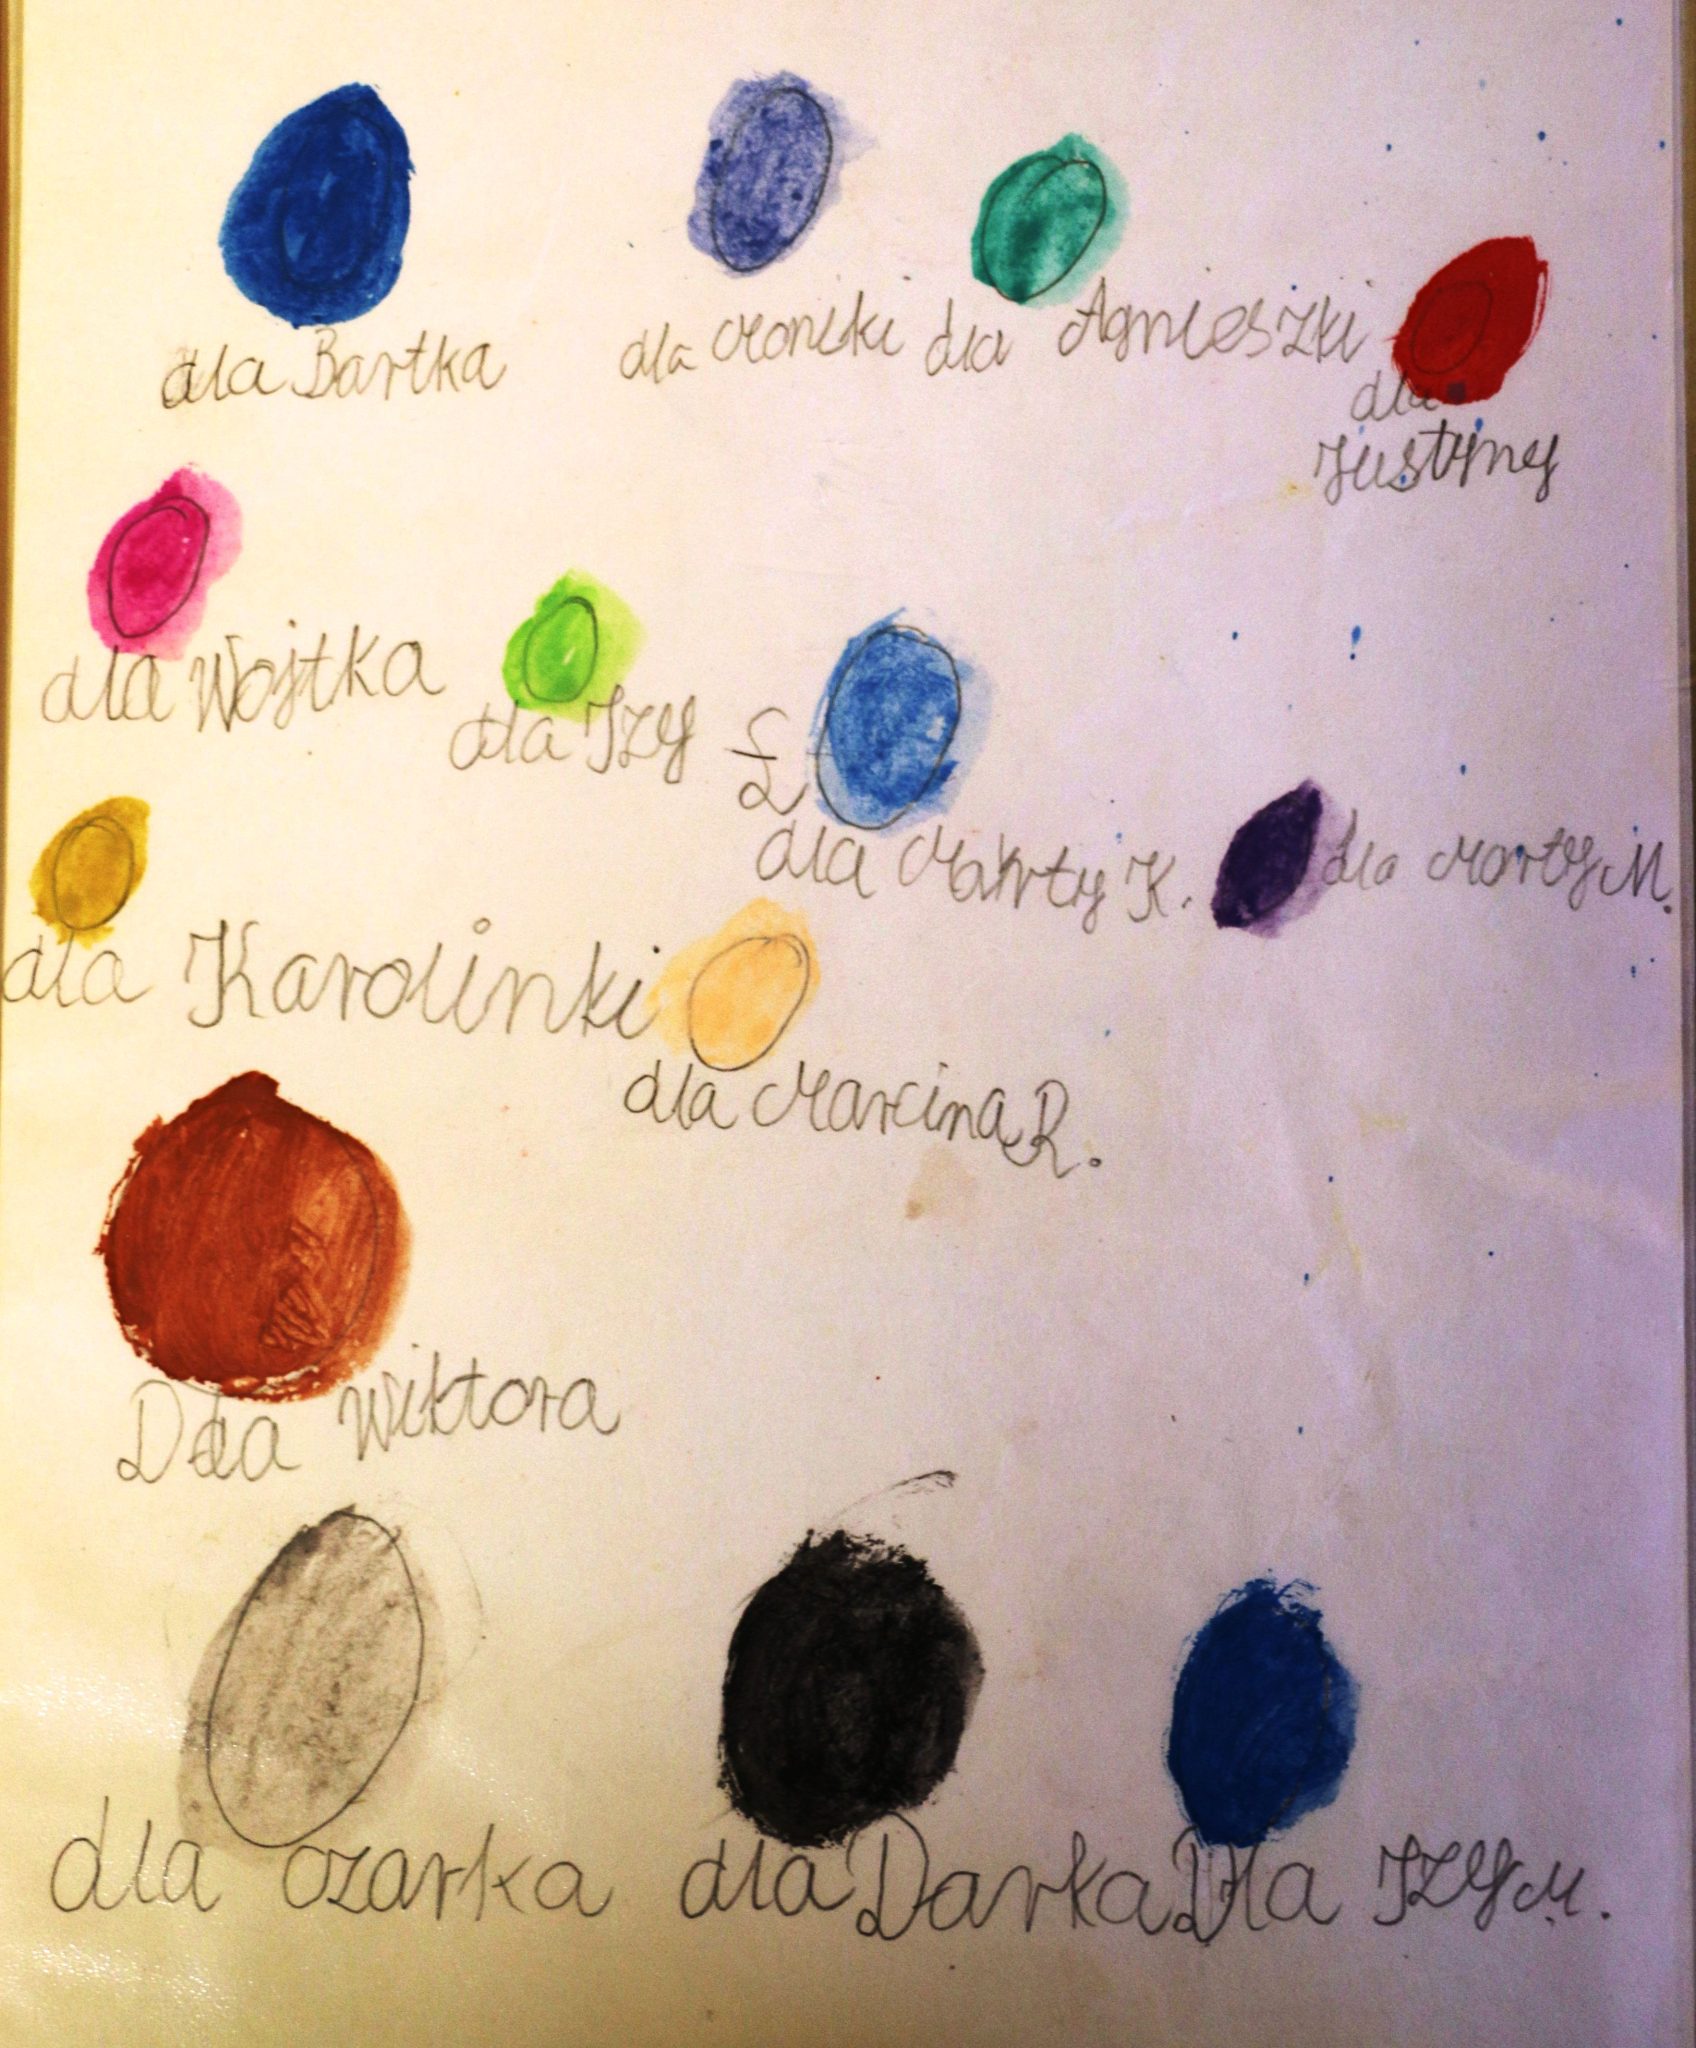 dla Bartka
dla Moniki
dla Agnieszki
dla
Justyny
dla Wojtka
dla Izy Ł
dla Marty K.
dla Marty M.
dla Karolinki
dla Marcina R.
Dla Wiktora
dla czarka
dla Darka
Dla Izy M.